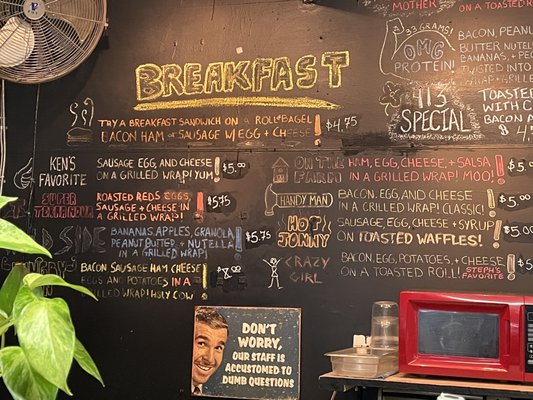 BREAKFAST
TRY A BREAKFAST SANDWICH ON A ROLL/BAGEL
BACON HAM OR SAUSAGE W/ EGG + CHEESE ! $4.75
KEN'S FAVORITE
SAUSAGE, EGG, AND CHEESE
ON A GRILLED WRAP! YUM ! $5.00
SUPER TERRANOVA
ROASTED REDS, EGGS,
SAUSAGE + CHEESE IN
A GRILLED WRAP! ! $5.75
SIDE
BANANAS, APPLES, GRANOLA,
PEANUT BUTTER + NUTELLA
IN A GRILLED WRAP! ! $5.75
BACON SAUSAGE HAM CHEESE
EGGS AND POTATOES IN A
GRILLED WRAP! HOLY COW !
MOTHER
ON A TOASTED
33 GRAMS!
OMG
PROTEIN
BACON,
BUTTER NUTELLA
BANANAS, + PE
TWISTED INTO
WRAP + GRILLED
413
SPECIAL
TOASTED
WITH C
BACON A
$4
ON THE FARM
HAM, EGG, CHEESE, + SALSA
IN A GRILLED WRAP! MOO! ! $5
HANDY MAN
BACON, EGG, AND CHEESE
IN A GRILLED WRAP! CLASSIC! ! $5.00
HOT JOHNNY
SAUSAGE, EGG, CHEESE, + SYRUP
ON TOASTED WAFFLES! ! $5.00
CRAZY GIRL
BACON, EGG, POTATOES, + CHEESE
ON A TOASTED ROLL! STEPH'S FAVORITE ! $5
DON'T
WORRY,
OUR STAFF IS
ACCUSTOMED TO
DUMB QUESTIONS